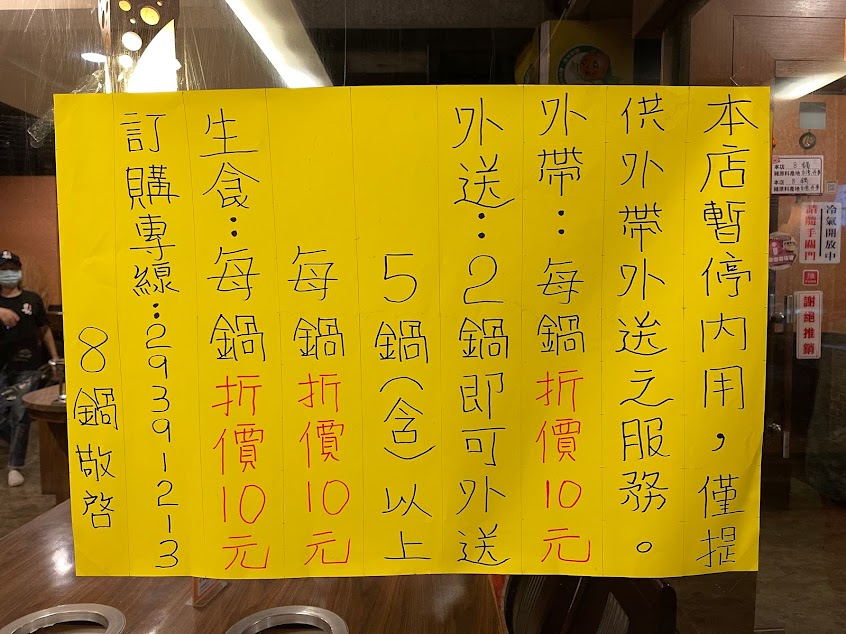 本店暫停內用，僅提
供外帶外送之服務。
外帶：每鍋折價10元
外送：2鍋即可外送
5鍋(含)以上
每鍋折價10元
生食：每鍋折價10元
訂購專線：29391213
8鍋敬啓
冷氣開放中
請隨手關門
謝絕推銷